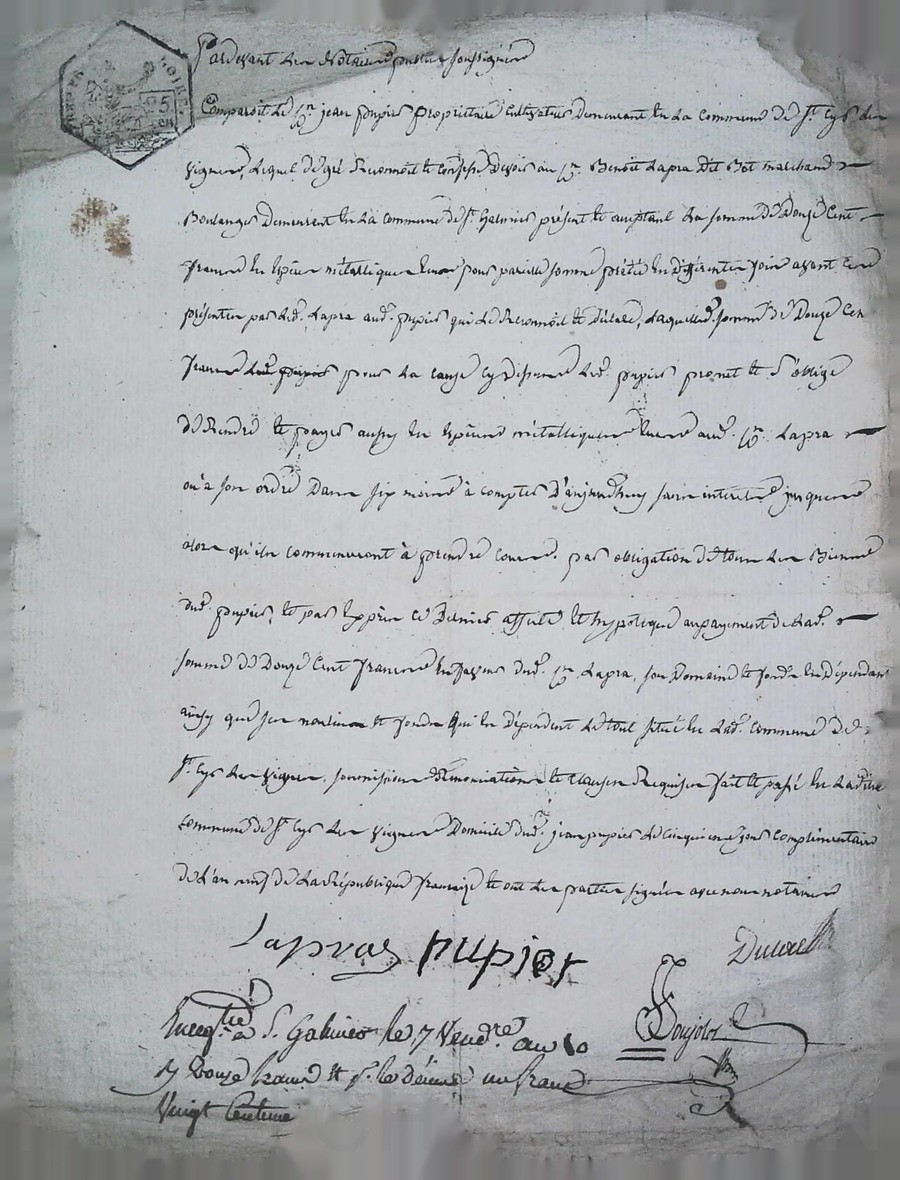 REP. FRA LOIRE
25 cen
Pardevant Les Notaires publics soussignés
Comparoit le Sr. jean pupier propriétaire Cultivateur Demeurant En La Commune de St. Cyr Les
vignes, Lequel de gré Reconnoit et Confesse Devoir au Sr. Benoit Lapra Dit Bot marchand
Boulanger Demeurant En La Commune de St. Galmier présent et aceptant La somme De Douze Cent
francs En Espèces métalliques pour pareille somme prétée En Differentes fois avant Ces
présentes par Led. Lapra aud. pupier qui Le Reconnoit et Déclare, Laquelle somme de Douze Cen
francs pour La cause cy Dessus Led. pupier promet et S'oblige
De Rendre et payer aussy En Espèces métalliques aud. Sr. Lapra
ou à son ordre Dans six mois à compter D'aujourdhuy sans interets jusques
alors qu'ils commenceront à prendre cours. par obligation de tous Les Biens
dud. pupier, et par Exprès ce Dernier affecte et hypotèque au payement de Lad.
somme de Douze Cent francs En faveur dud. Sr. Lapra, son Domaine et fonds En Dépendant
ainsy que ses et fonds qui En Dépendent Le tout situé En Lad. Commune de
St. Cyr Les vignes, soumissions Renonciations et Clauses Requises fait et passé En Ladite
commune de St. Cyr Les vignes Domicile dud. jean pupier Le cinquieme jour complémentaire
de L'an neuf de La République française et ont Les parties signées avec nous notaires
Lapras pupier
Enregtré à S. Galmier le 7 Vendre an 10
Douze francs et p. le décime un franc
Vingt Centime